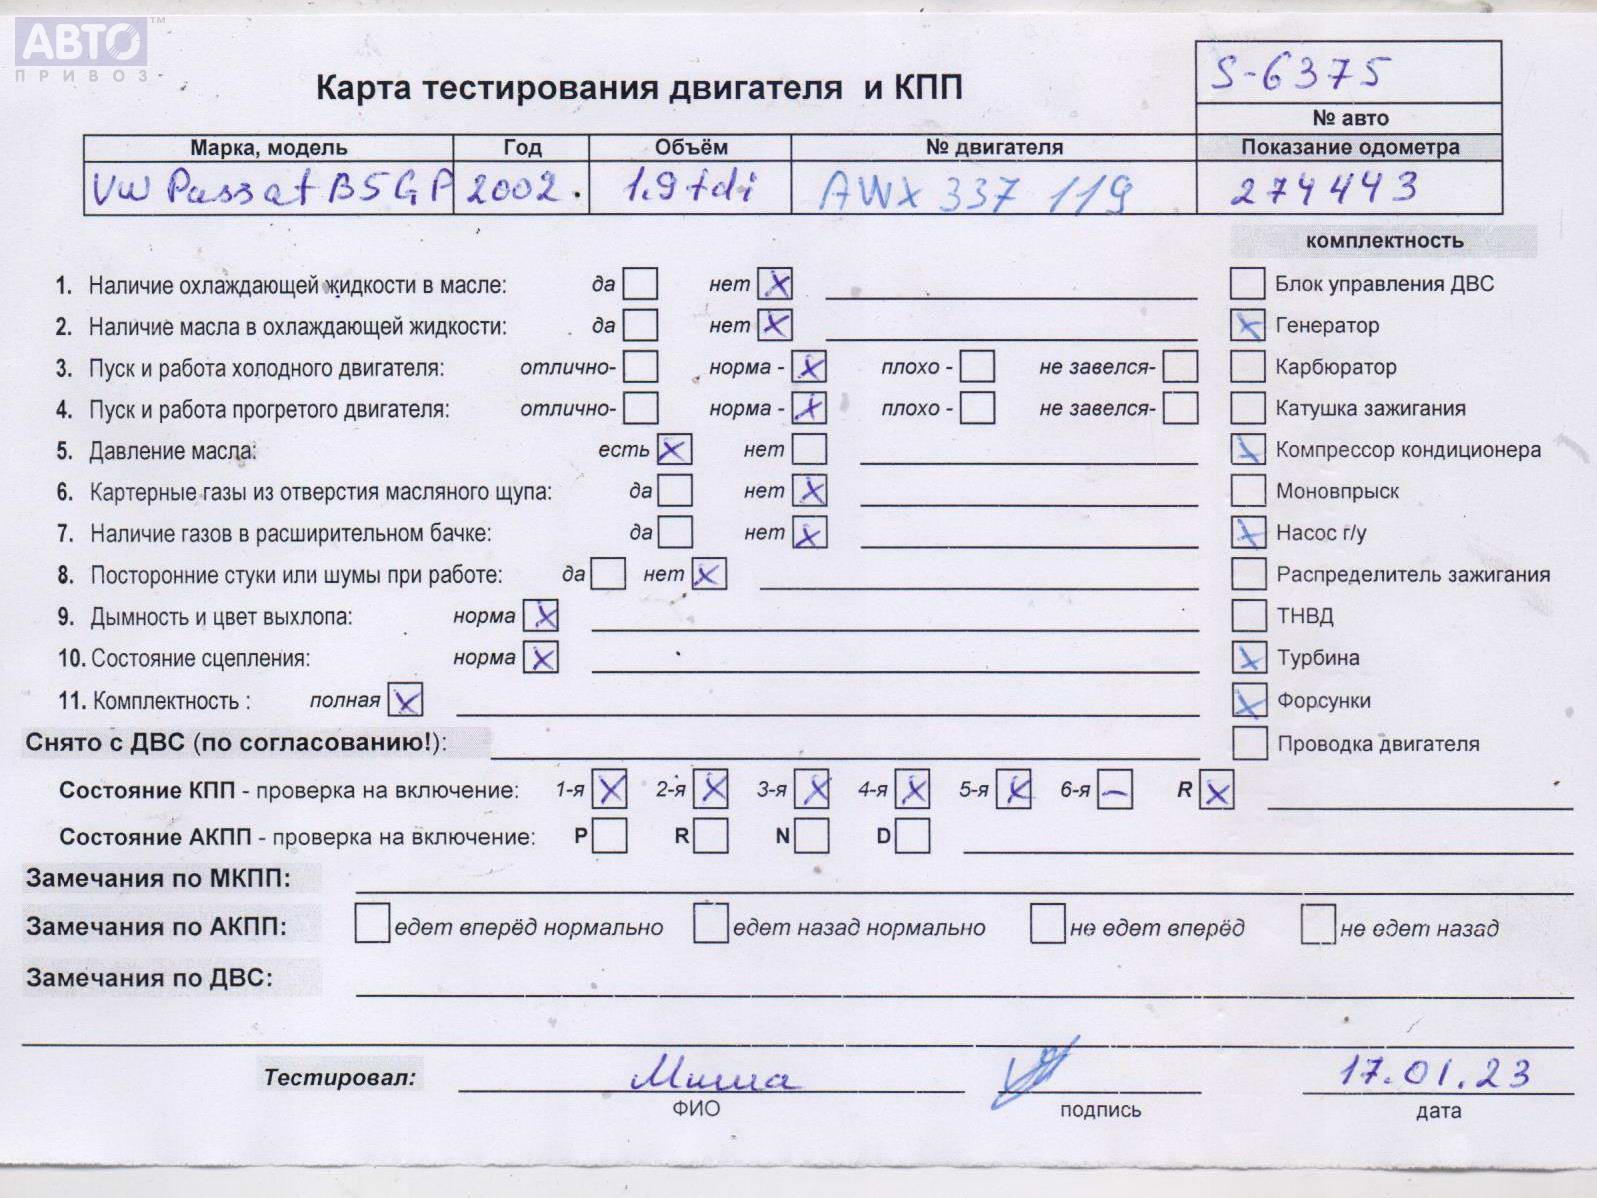 АВТО™
ПРИВОЗ
S-6375
Карта тестирования двигателя и КПП
№ авто
Марка, модель Год Объём № двигателя Показание одометра
VW Passat B5GP 2002. 1.9 tdi AWX 337 119 274443
комплектность
1. Наличие охлаждающей жидкости в масле: да нет Блок управления ДВС
2. Наличие масла в охлаждающей жидкости: да нет Генератор
3. Пуск и работа холодного двигателя: отлично- норма - плохо - не завелся- Карбюратор
4. Пуск и работа прогретого двигателя: отлично- норма - плохо - не завелся- Катушка зажигания
5. Давление масла: есть нет Компрессор кондиционера
6. Картерные газы из отверстия масляного щупа: да нет Моновпрыск
7. Наличие газов в расширительном бачке: да нет Насос г/у
8. Посторонние стуки или шумы при работе: да нет Распределитель зажигания
9. Дымность и цвет выхлопа: норма ТНВД
10. Состояние сцепления: норма Турбина
11. Комплектность : полная Форсунки
Снято с ДВС (по согласованию!): Проводка двигателя
Состояние КПП - проверка на включение: 1-я 2-я 3-я 4-я 5-я 6-я R
Состояние АКПП - проверка на включение: P R N D
Замечания по МКПП:
Замечания по АКПП: едет вперёд нормально едет назад нормально не едет вперёд не едет назад
Замечания по ДВС:
Тестировал: Миша 17.01.23
ФИО подпись дата